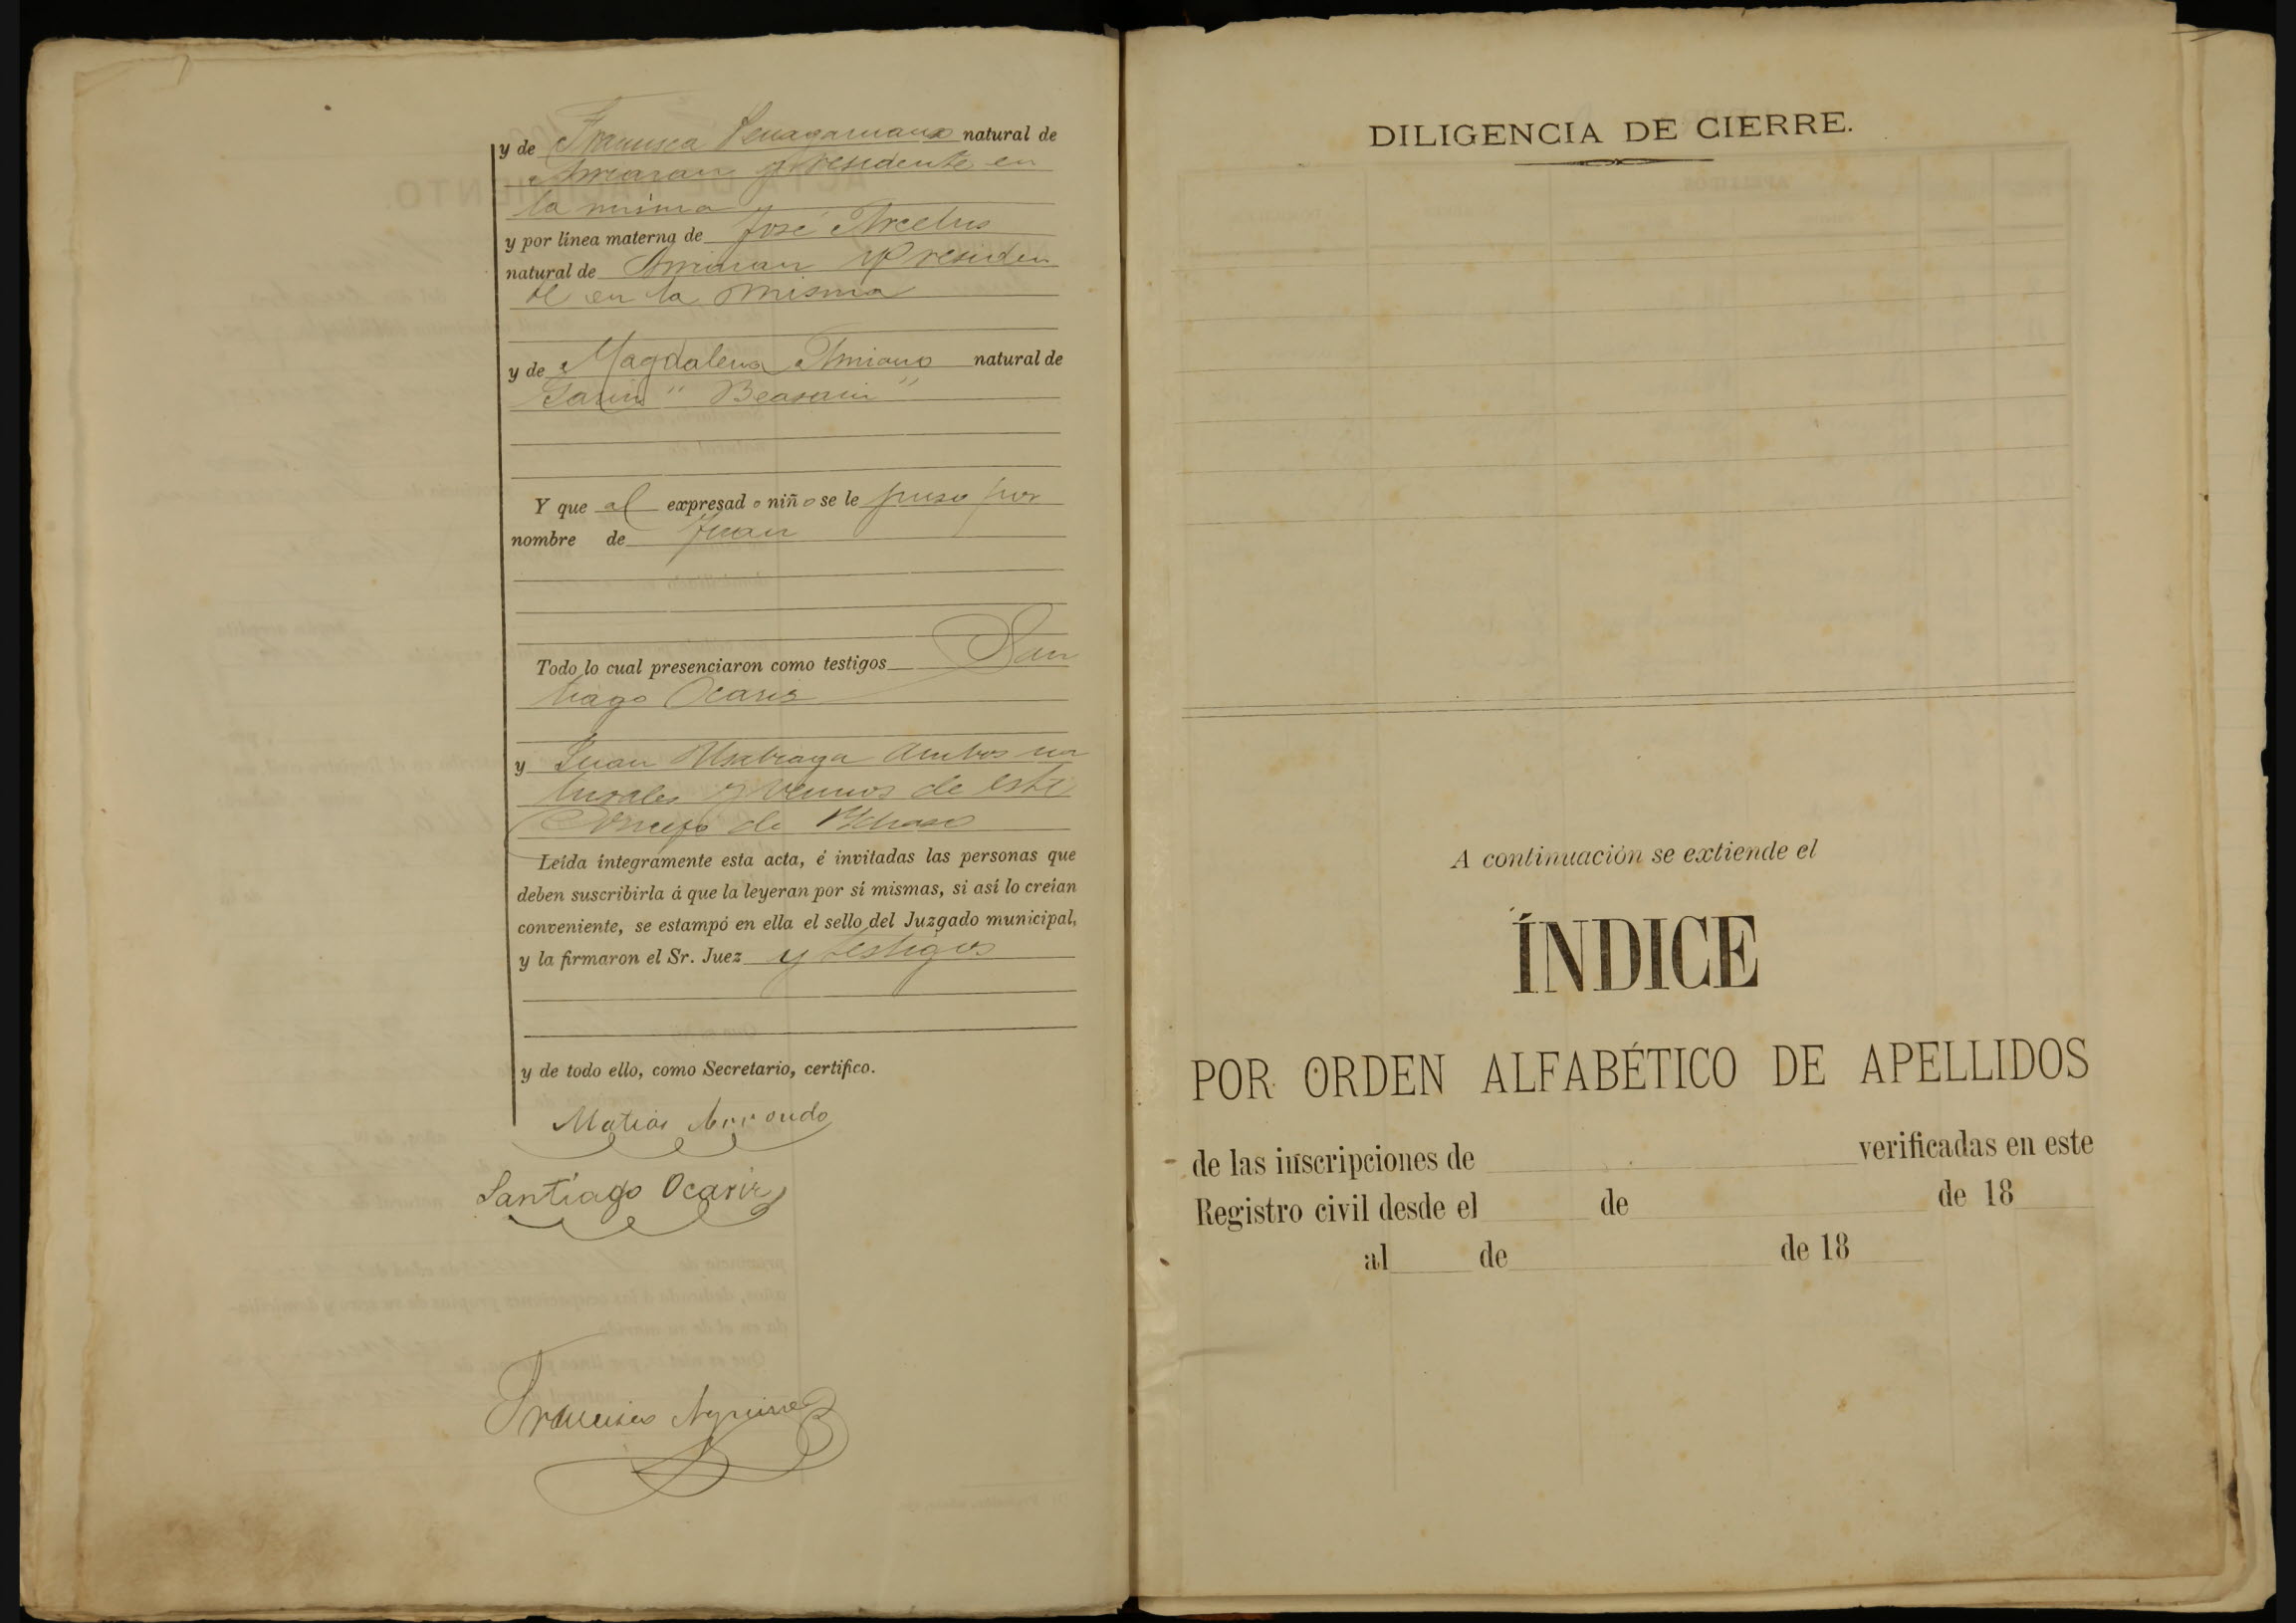 y de Francisca Senagamano natural de
Arriaran y residente en
la misma
y por línea materna de José Arcelus
natural de Arriaran y residen
te en la misma
y de Magdalena Amiano natural de
Garin " Beasain "
Y que al expresado niño se le puso por
nombre de Juan
Todo lo cual presenciaron como testigos San
tiago Ocariz
y Juan Usabiaga ambos na
turales y vecinos de este
Concejo de
Leída íntegramente esta acta, é invitadas las personas que
deben suscribirla á que la leyeran por sí mismas, si así lo creían
conveniente, se estampó en ella el sello del Juzgado municipal,
y la firmaron el Sr. Juez y testigos
y de todo ello, como Secretario, certifico.
Matias Arrondo
Santiago Ocariz
Francisco Aguirre
DILIGENCIA DE CIERRE.
A continuación se extiende el
ÍNDICE
POR ORDEN ALFABÉTICO DE APELLIDOS
de las inscripciones de verificadas en este
Registro civil desde el de de 18
al de de 18